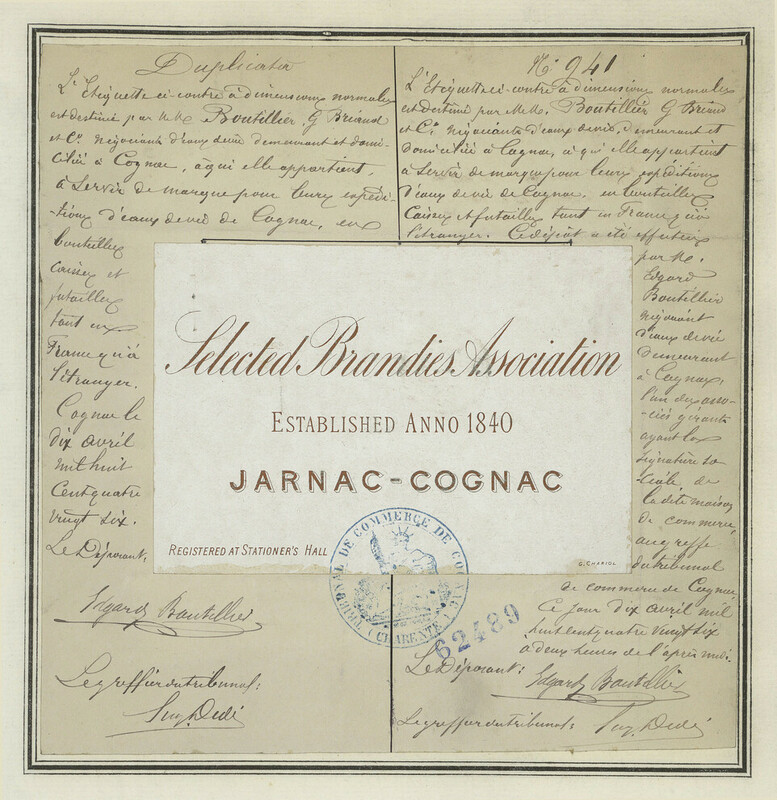 Duplicata
L'Etiquette ci-contre à dimensions normales
est destiné par M.M. Boutillier, G. Briand
et Cie. négociants d'eaux de vie demeurant et domi-
cilié à Cognac, à qui elle appartient,
à Servir de marque pour leurs expédi-
tions d'eaux de vie de Cognac, en
bouteilles
caisses et
futailles
tant en
France qu'à
l'étranger.
Cognac le
dix avril
mil huit
Cent quatre
vingt six.
Le Déposant,
Edgard Boutillier
Le greffier du tribunal:
No. 941
L'Etiquette ci-contre à dimensions normales
est destiné par M.M. Boutillier G. Briand
et Cie. négociants d'eaux de vie, demeurant et
domicilié à Cognac, à qui elle appartient
à Servir de marque pour leurs expéditions
d'eaux de vie de Cognac, en bouteilles
Caisses et futailles tant en France qu'à
l'étranger. Ce dépôt a été effectué
par M.
Edgard
Boutillier
négociant
d'eaux de vie
demeurant
à Cognac,
l'un des asso-
ciés gérants
ayant la
signature so-
ciale de
la dite maison
de commerce,
au greffe
du tribunal
de commerce de Cognac,
Ce jour dix avril mil
huit cent quatre vingt six
à deux heures de l'après midi.
Le Déposant: Edgard Boutillier
Le greffier du tribunal:
Selected Brandies Association
ESTABLISHED ANNO 1840
JARNAC-COGNAC
REGISTERED AT STATIONER'S HALL
G. CHARIOL
TRIBUNAL DE COMMERCE DE COGNAC
(CHARENTE)
62489